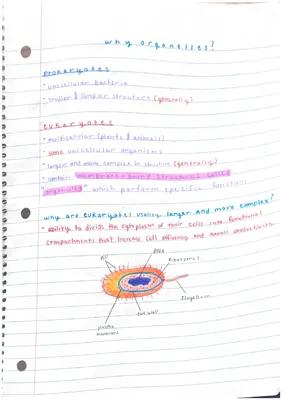 why organelles?
prokaryotes
• unicellular bacteria
• smaller & simpler structure (generally)
eukaryotes
• multicellular (plants & animals)
• some unicellular organisms
• larger and more complex in structure (generally)
• contain membrane-bound structures called
"organelles" which perform specific functions
why are eukaryotes usually larger and more complex?
• ability to divide the cytoplasm of their cells into functional
compartments that increase cell efficiency and overall productivity
pili
DNA
ribosomes
flagellum
cell wall
plasma
membrane